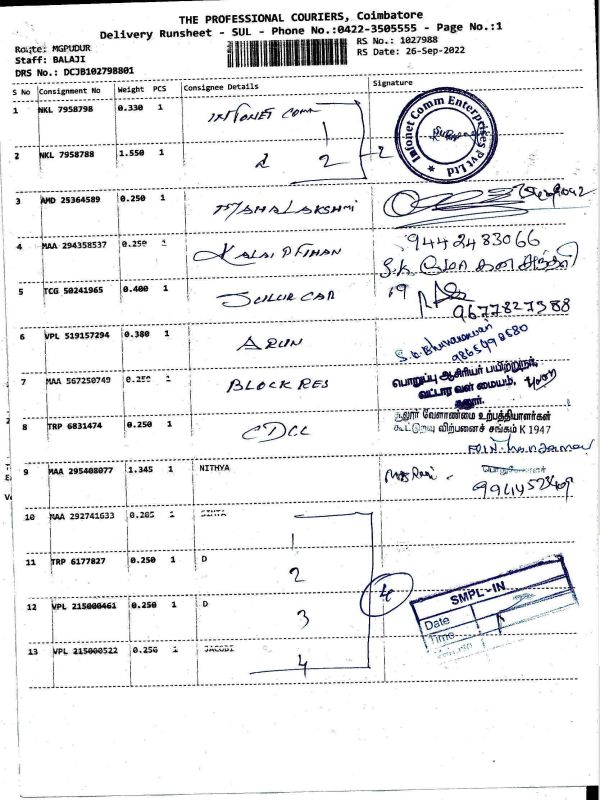 THE PROFESSIONAL COURIERS, Coimbatore
Delivery Runsheet - SUL - Phone No.:0422-3505555 - Page No.:1
Route: MGPUDUR
RS No.: 1027988
Staff: BALAJI
RS Date: 26-Sep-2022
DRS No.: DCJB102798801
S No Consignment No Weight PCS Consignee Details Signature
1 NKL 7958798 0.330 1 INFONET COMM
1
Infonet Comm Enterprises Pvt Ltd
2 NKL 7958788 1.550 1 2 2
3 AMD 25364589 0.250 1 MAHALAKSHMI
4 MAA 294358537 0.250 1 KALAI
9442483066
5 TCG 50241965 0.400 1 SULUR CAR
9677827388
6 VPL 519157294 0.380 1 ARUN
S. Bhuvaneswari
7 MAA 567250749 0.250 1 BLOCK RES
பொறுப்பு ஆசிரியர் பயிற்றுநர்,
வட்டார வள மையம்,
சூலூர்.
8 TRP 6831474 0.250 1 CDCC
சூலூர் வேளாண்மை உற்பத்தியாளர்கள்
கூட்டுறவு விற்பனைச் சங்கம் K 1947
9 MAA 295408077 1.345 1 NITHYA
10 MAA 292741633 0.205 1
1
11 TRP 6177827 0.250 1 D
2
12 VPL 215000461 0.250 1 D
3
4
SMPL-IN
Date
Time
13 VPL 215000522 0.250 1 JACOBI
4